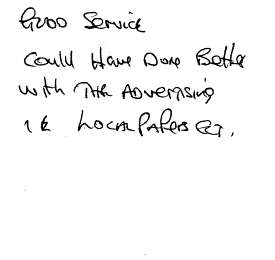 Good Service
Could Have Done Better
with The Advertising
IE Local Papers ect.